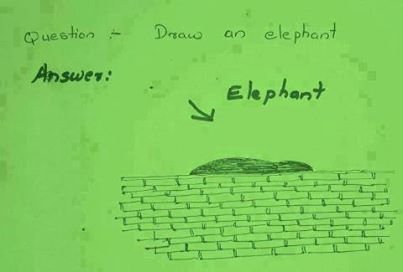 Question :- Draw an elephant
Answer:
Elephant